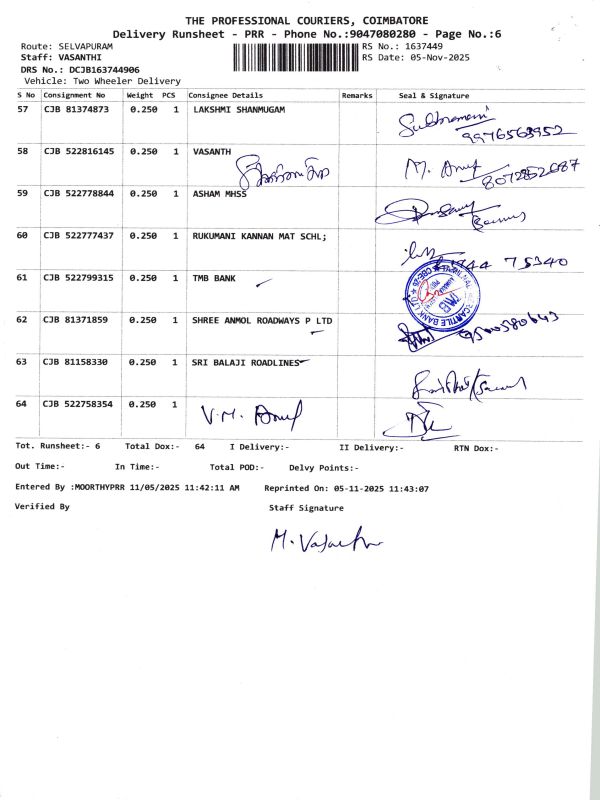 THE PROFESSIONAL COURIERS, COIMBATORE
Delivery Runsheet - PRR - Phone No.:9047080280 - Page No.:6
Route: SELVAPURAM
RS No.: 1637449
Staff: VASANTHI
RS Date: 05-Nov-2025
DRS No.: DCJB163744906
Vehicle: Two Wheeler Delivery
S No Consignment No Weight PCS Consignee Details Remarks Seal & Signature
57 CJB 81374873 0.250 1 LAKSHMI SHANMUGAM
9976563952
58 CJB 522816145 0.250 1 VASANTH
M.
59 CJB 522778844 0.250 1 ASHAM MHSS
60 CJB 522777437 0.250 1 RUKUMANI KANNAN MAT SCHL;
75340
61 CJB 522799315 0.250 1 TMB BANK
TMB
62 CJB 81371859 0.250 1 SHREE ANMOL ROADWAYS P LTD
9500580643
63 CJB 81158330 0.250 1 SRI BALAJI ROADLINES
64 CJB 522758354 0.250 1 V.M.
Tot. Runsheet:- 6 Total Dox:- 64 I Delivery:- II Delivery:- RTN Dox:-
Out Time:- In Time:- Total POD:- Delvy Points:-
Entered By :MOORTHYPRR 11/05/2025 11:42:11 AM Reprinted On: 05-11-2025 11:43:07
Verified By Staff Signature
M.